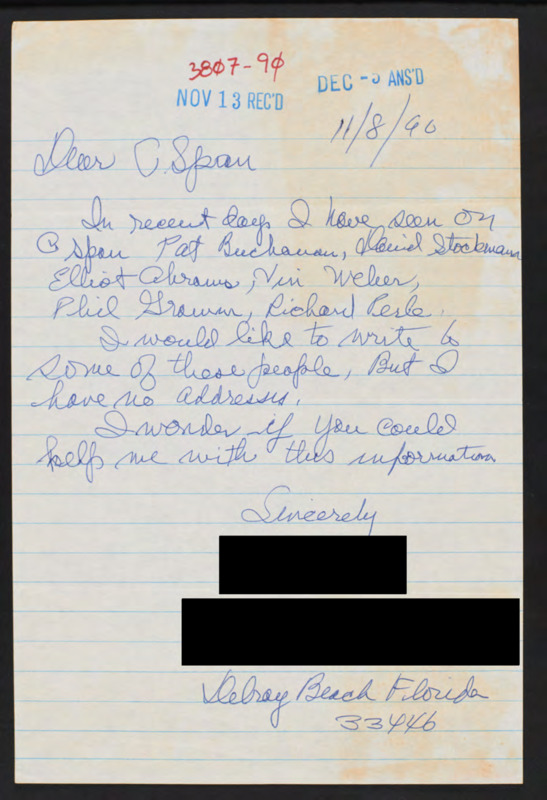 3807-90
NOV 13 REC'D
DEC -5 ANS'D
11/8/90
Dear C Span
In recent days I have seen on
C Span Pat Buchanan, David Stockmann
Elliot Abrams, Vin Weber,
Phil Gramm, Richard Perle.
I would like to write to
some of these people, But I
have no addresses.
I wonder if you could
help me with this information
Sincerely
Delray Beach Florida
33446